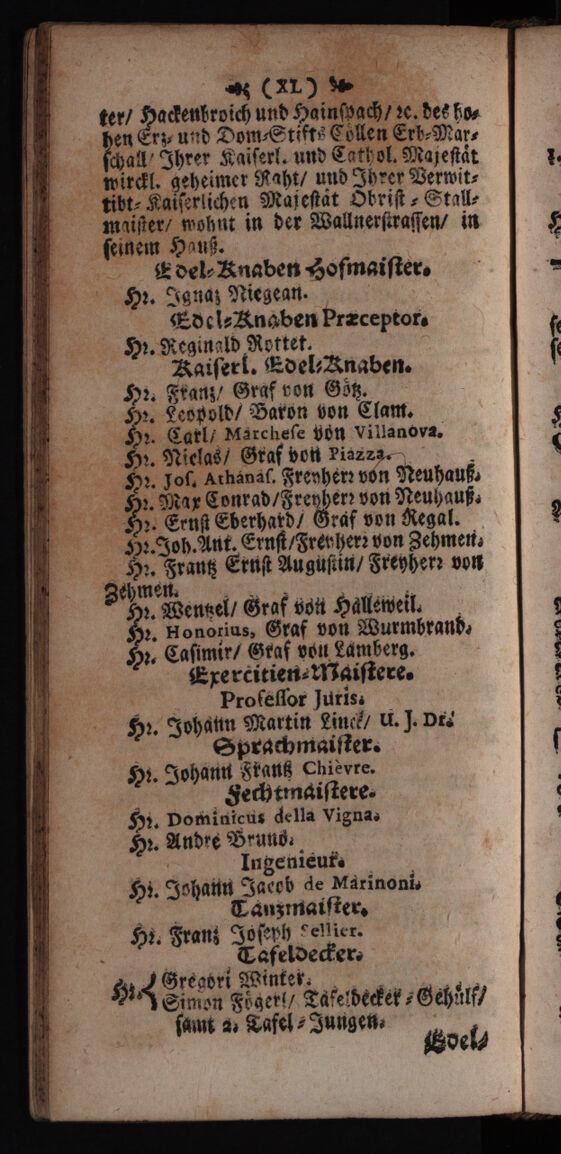 (XL)
ter/ Hackenbroich und Hainspach/ ꝛc. des ho-
hen Erz- und Dom-Stifts Cöllen Erb-Mar-
schall/ Ihrer Kaiserl. und Cathol. Majestät
würckl. geheimer Raht/ und Ihrer Verwit-
tibt-Kaiserlichen Majestät Obrist-Stall-
maister/ wohnt in der Wallnerstrassen/ in
seinem Hauß.
Edel-Knaben Hofmaister.
Hr. Ignaz Niegean.
Edel-Knaben Præceptor.
Hr. Reginald Rottet.
Kaiserl. Edel-Knaben.
Hr. Franz/ Graf von Götz.
Hr. Leopold/ Baron von Clam.
Hr. Carl/ Marchese von Villanova.
Hr. Niclas/ Graf von Piazza.
Hr. Jos. Athanas. Freyherr von Neuhauß.
Hr. Max Conrad/ Freyherr von Neuhauß.
Hr. Ernst Eberhard/ Graf von Regal.
Hr. Joh. Ant. Ernst/ Freyherr von Zehmen.
Hr. Frantz Ernst Augustin/ Freyherr von
Zehmen.
Hr. Wentzel/ Graf von Halleweil.
Hr. Honorius, Graf von Wurmbrand.
Hr. Casimir/ Graf von Lamberg.
Exercitien-Maistere.
Professor Juris.
Hr. Johann Martin Linck/ U. J. Dr.
Sprachmaister.
Hr. Johann Frantz Chièvre.
Fechtmaistere.
Hr. Dominicus della Vigna.
Hr. Andre Bruno.
Ingenieur.
Hr. Johann Jacob de Marinoni.
Tanzmaister.
Hr. Franz Joseph Sellier.
Tafeldecker.
Hr. { Gregori Winter.
Simon Fögerl/ Tafeldecker-Gehülf/
samt 2. Tafel-Jungen.
Edel-